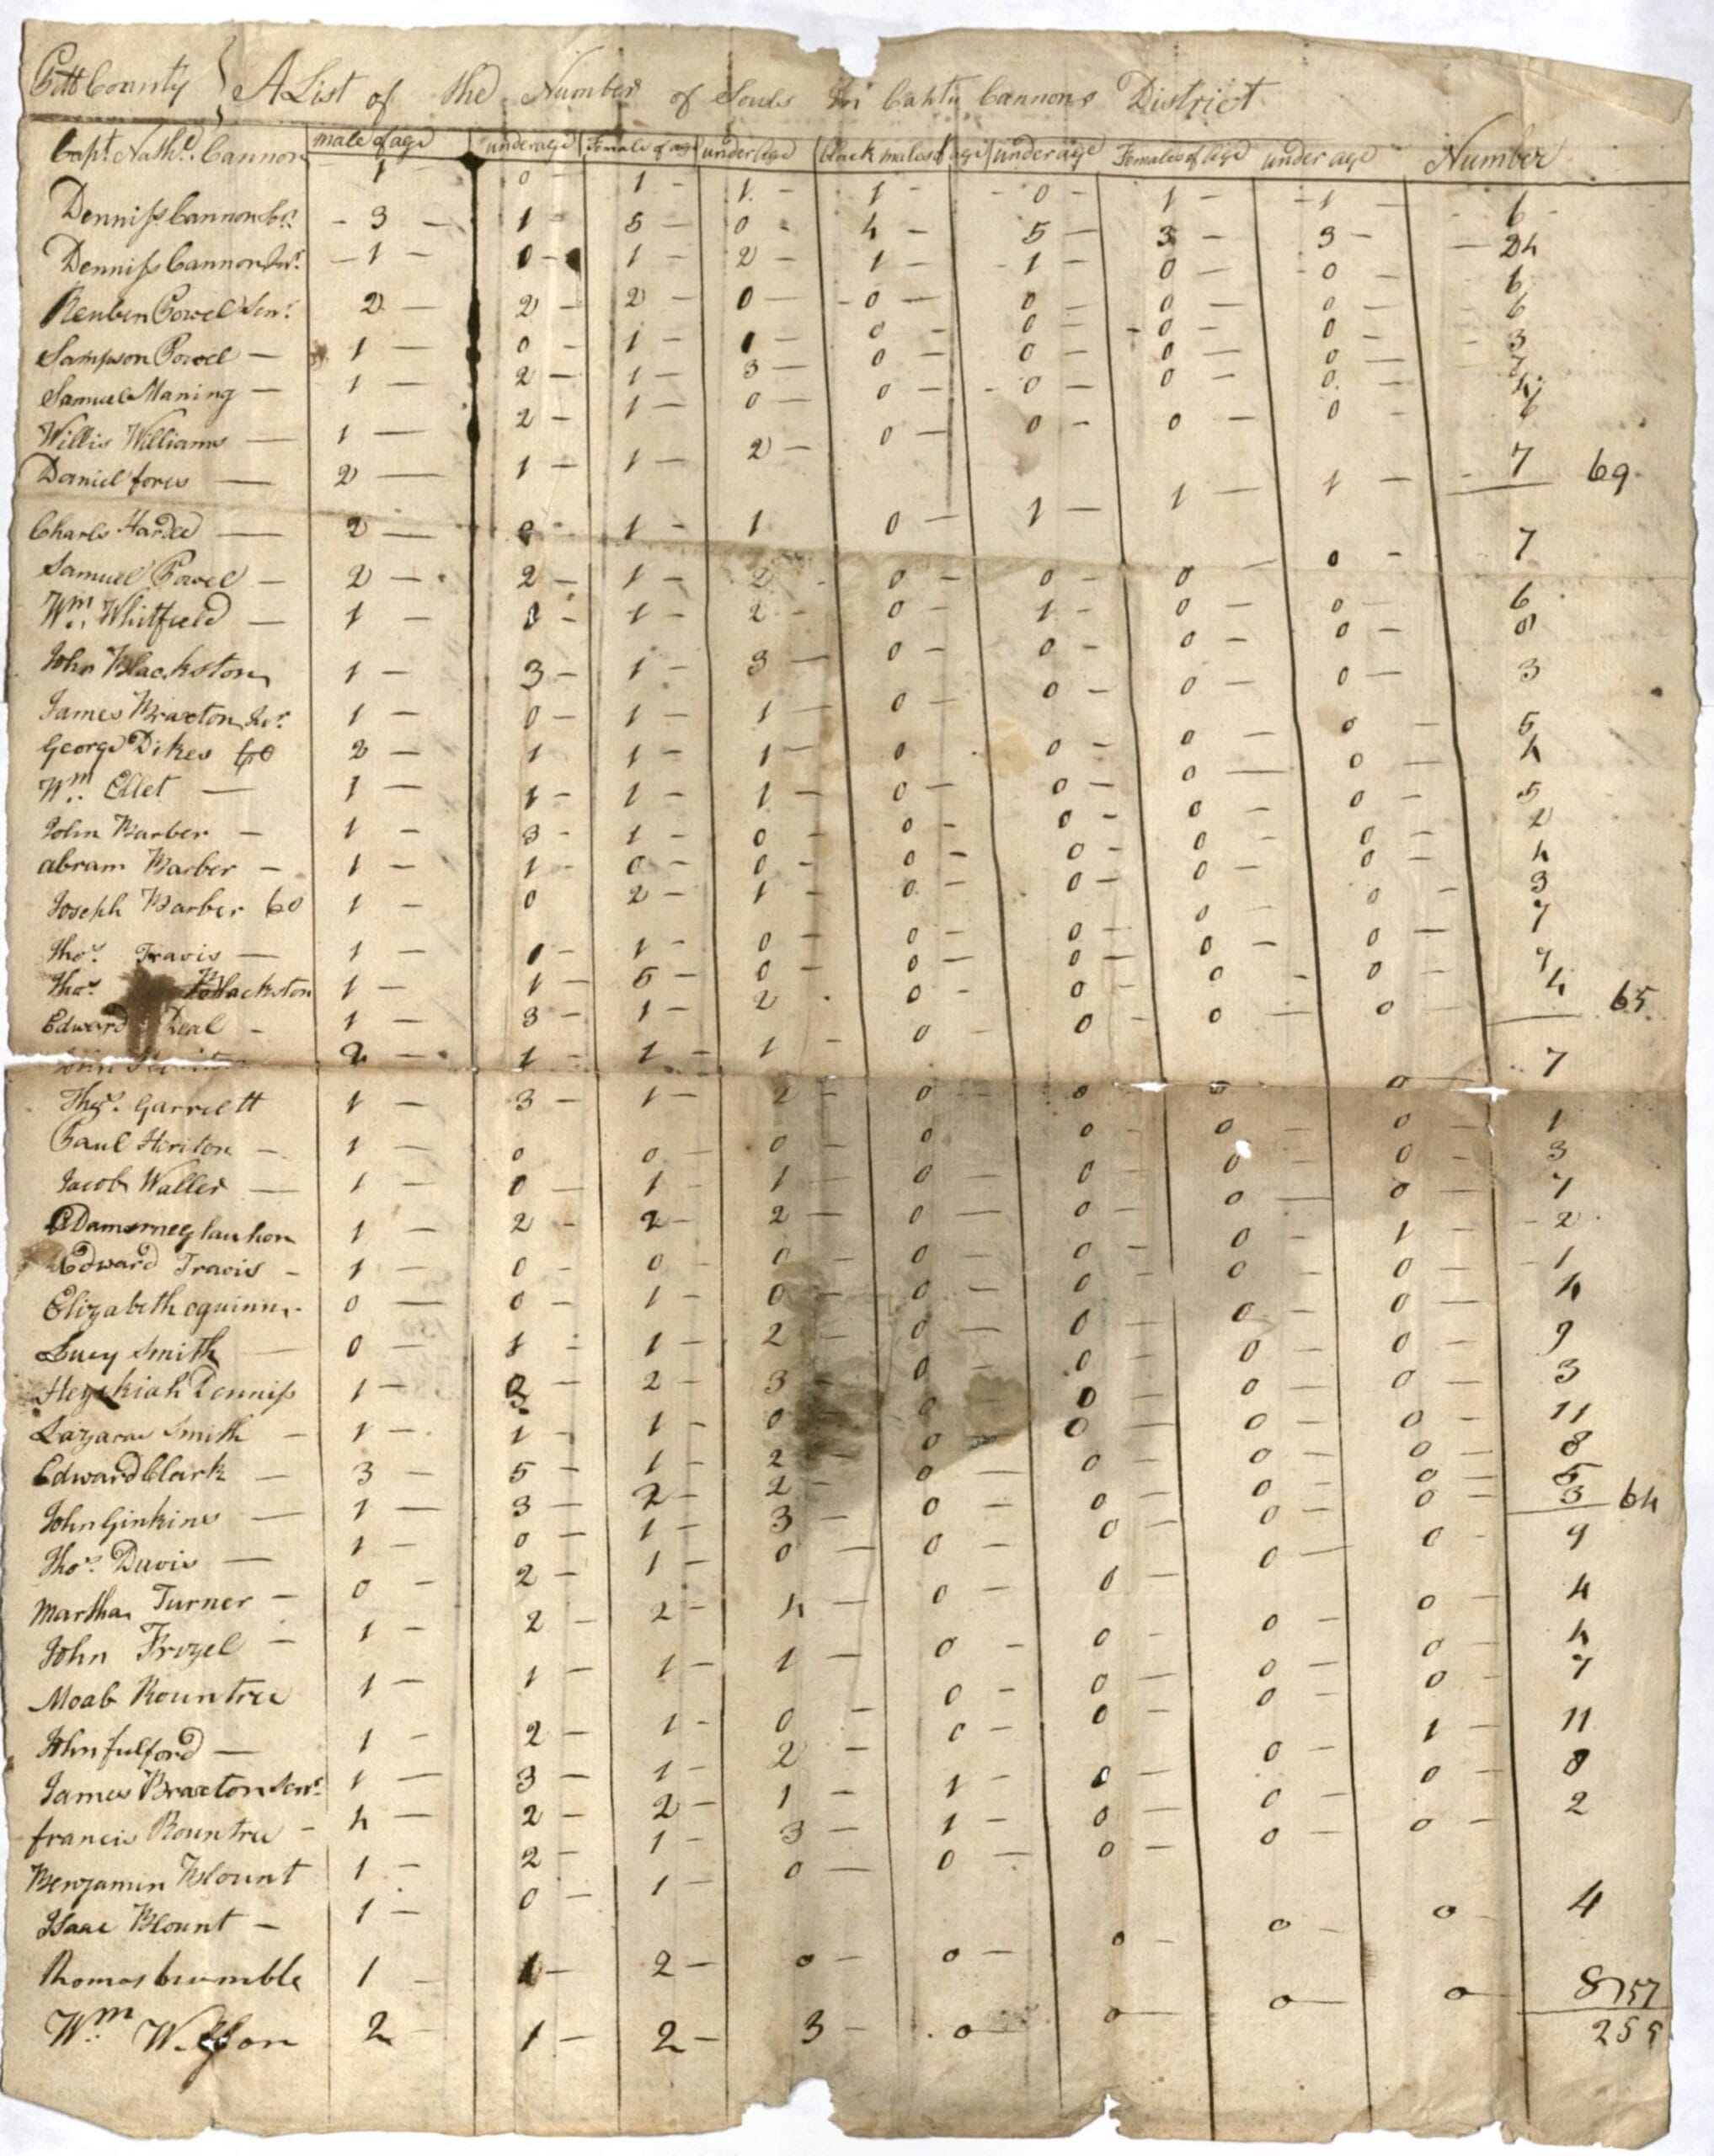 Pitt County } A List of the Number of Souls in Captn Cannons District
male of age under age Female of age under age black males of age under age Females of age under age Number
Capt. Nathl. Cannon 1 0 1 1 1 0 1 1 6
Dennis Cannon Sr. 3 1 5 0 4 5 3 3 24
Dennis Cannon Jnr. 1 0 1 2 1 1 0 0 6
Reuben Powel Senr. 2 2 2 0 0 0 0 0 6
Sampson Powel 1 0 1 1 0 0 0 0 3
Samuel Maning 1 2 1 3 0 0 0 0 7
Willis Williams 1 2 1 0 0 0 0 0 4
Daniel fores 2 1 1 2 0 0 0 0 6
Charls Hardee 2 0 1 1 0 1 1 1 7 69
Samuel Powel 2 2 1 2 0 0 0 0 7
Wm. Whitfield 1 1 1 2 0 1 0 0 6
John Blackston 1 3 1 3 0 0 0 0 8
James Braxton Jur. 1 0 1 1 0 0 0 0 3
George Dikes 60 2 1 1 1 0 0 0 0 5
Wm. Ellet 1 1 1 1 0 0 0 0 4
John Barber 1 3 1 0 0 0 0 0 5
abram Barber 1 1 0 0 0 0 0 0 2
Joseph Barber 60 1 0 2 1 0 0 0 0 4
Thos. Travis 1 1 1 0 0 0 0 0 3
Thos. Blackston 1 1 5 0 0 0 0 0 7
Edward Neal 1 3 1 2 0 0 0 0 7
John 2 1 1 1 0 0 0 0 4 65
Thos. Garrett 1 3 1 2 0 0 0 0 7
Paul Heriton 1 0 0 0 0 0 0 0 1
Jacob Waller 1 0 1 1 0 0 0 0 3
Adam mcglauhon 1 2 2 2 0 0 0 0 7
Edward Travis 1 0 0 0 0 0 0 1 2
Elizabeth oquinn 0 0 1 0 0 0 0 0 1
Lucy Smith 0 1 1 2 0 0 0 0 4
Hezekiah Dennis 1 3 2 3 0 0 0 0 9
Lazarus Smith 1 1 1 0 0 0 0 0 3
Edward Clark 3 5 1 2 0 0 0 0 11
John Ginkins 1 3 2 2 0 0 0 0 8
Thos. Davis 1 0 1 3 0 0 0 0 5
Martha Turner 0 2 1 0 0 0 0 0 3 64
John Frizel 1 2 2 4 0 0 0 0 9
Moab Rountree 1 1 1 1 0 0 0 0 4
John fulford 1 2 1 0 0 0 0 0 4
James Braxton Senr. 1 3 1 2 0 0 0 0 7
francis Rountree 4 2 2 1 1 0 0 1 11
Benjamin Blount 1 2 1 3 1 0 0 0 8
Isaac Blount 1 0 1 0 0 0 0 0 2
Thomas brumble 1 1 2 0 0 0 0 0 4
Wm. Wilson 2 1 2 3 0 0 0 0 8 57
259